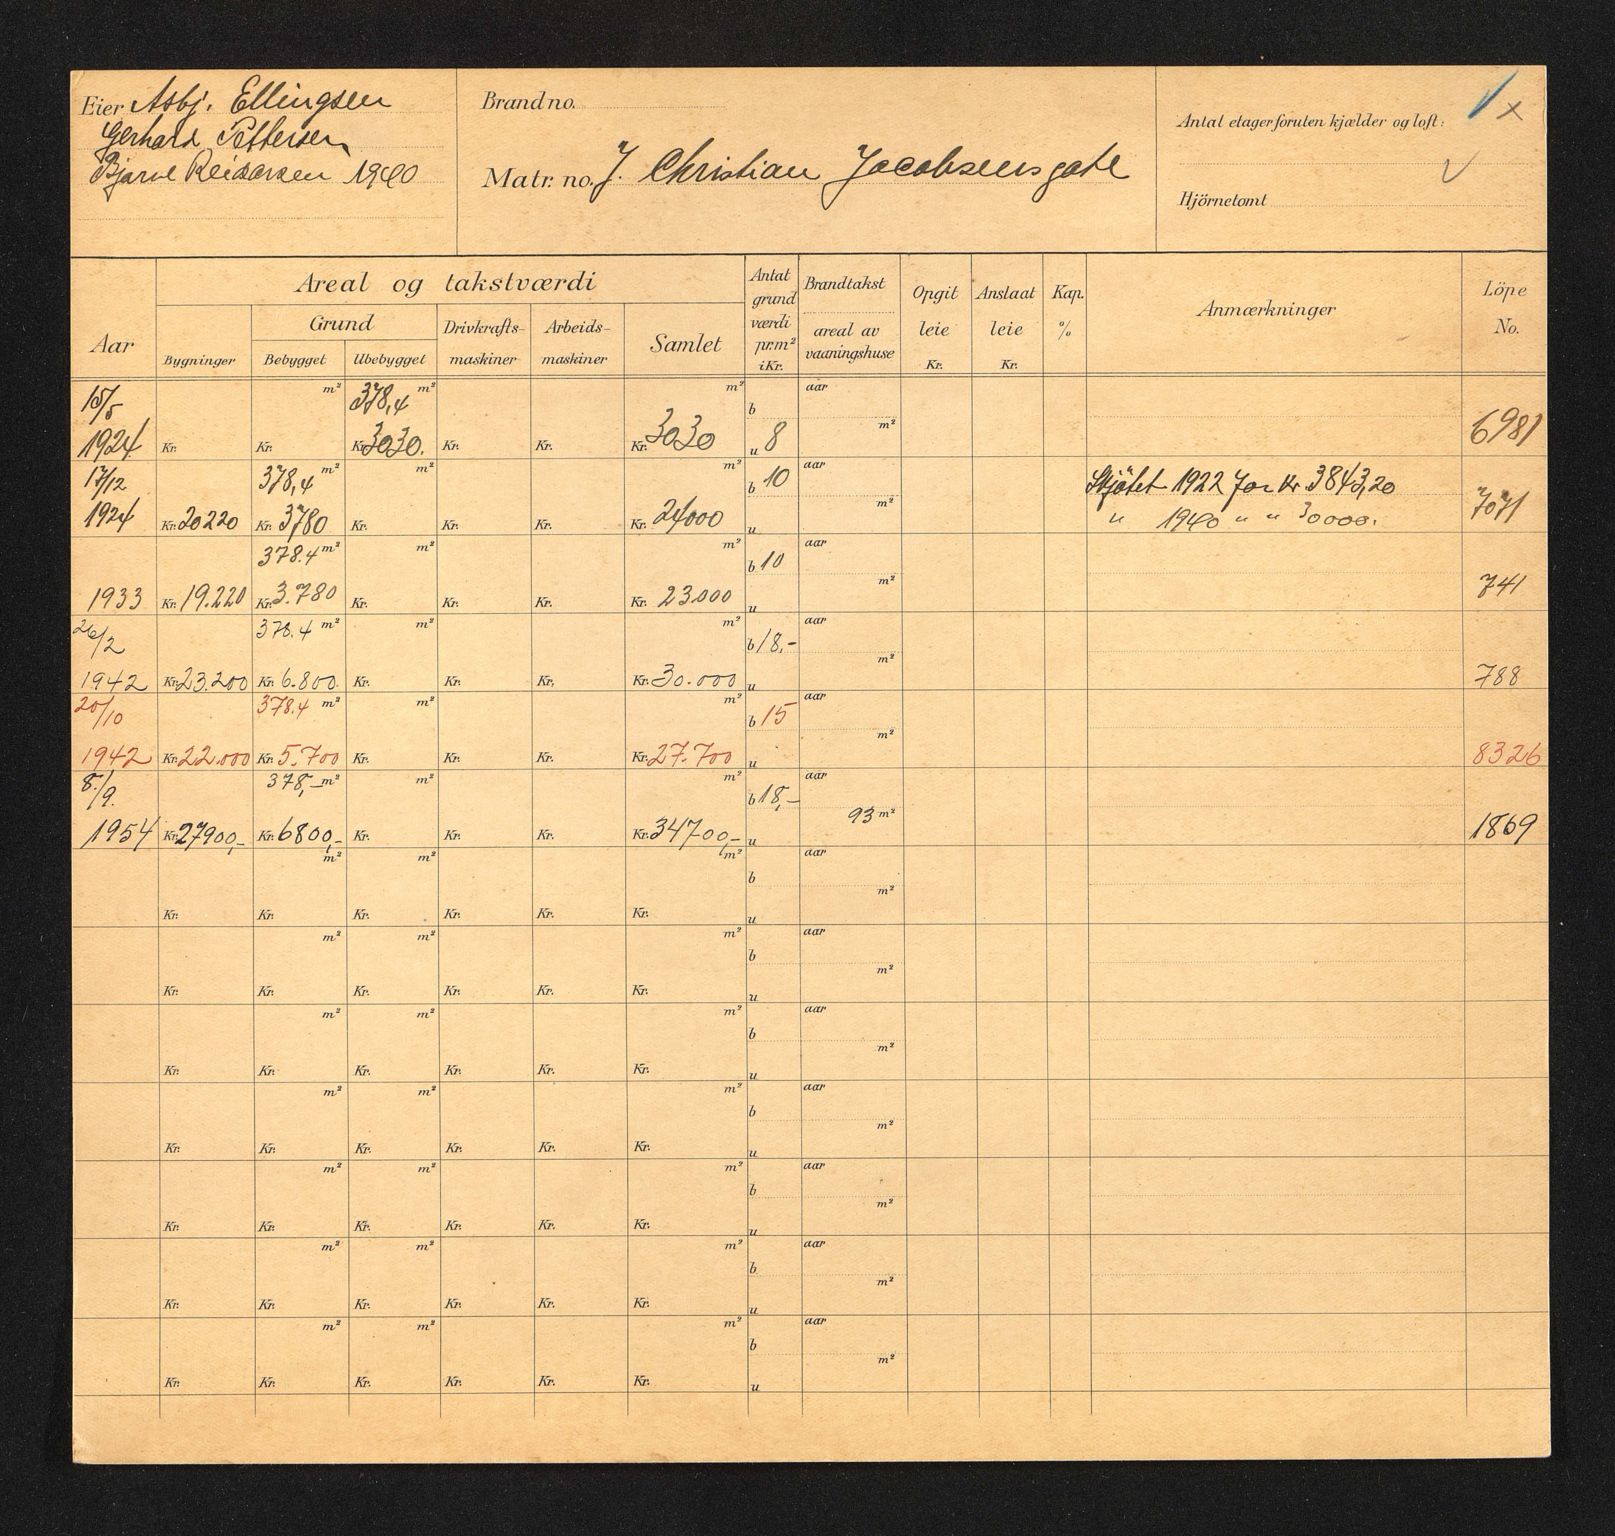 Eier Asbj. Ellingsen
Gerhard Pettersen
Bjarne Reidarsen 1940
Brand no.
Matr. no. J. Christian Jacobsensgate
Antal etager foruten kjælder og loft:
Hjörnetomt
Aar
Areal og takstværdi
Bygninger
Grund
Bebygget
Ubebygget
Drivkrafts-
maskiner
Arbeids-
maskiner
Samlet
Antat
grund
værdi
pr. m²
i Kr.
Brandtakst
areal av
vaaningshuse
Opgit
leie
Kr.
Anslaat
leie
Kr.
Kap.
%
Anmærkninger
Löpe
No.
15/5 m² 378,4 m² m² b aar
1924 Kr. Kr. Kr. 3030. Kr. Kr. Kr. 3030 u 8 m² 6981
17/12 378,4 m² m² m² b 10 aar Skjötet 1922 for kr. 3843,20
1924 Kr. 20220 Kr. 3780 Kr. Kr. Kr. Kr. 24000 u m² " 1940 " " 30000. 7071
378.4 m² m² m² b 10 aar
1933 Kr. 19.220 Kr. 3.780 Kr. Kr. Kr. Kr. 23.000 u m² 741
26/2 378.4 m² m² m² b 18,- aar
1942 Kr. 23.200 Kr. 6.800 Kr. Kr. Kr. Kr. 30.000 u m² 788
20/10 378.4 m² m² m² b 15 aar
1942 Kr. 22.000 Kr. 5.700 Kr. Kr. Kr. Kr. 27.700 u m² 8326
8./9. 378,- m² m² m² b 18,- aar
1954 Kr. 27900,- Kr. 6800,- Kr. Kr. Kr. Kr. 34700,- u 93 m² 1869
m² m² m² b aar
Kr. Kr. Kr. Kr. Kr. Kr. u m²
m² m² m² b aar
Kr. Kr. Kr. Kr. Kr. Kr. u m²
m² m² m² b aar
Kr. Kr. Kr. Kr. Kr. Kr. u m²
m² m² m² b aar
Kr. Kr. Kr. Kr. Kr. Kr. u m²
m² m² m² b aar
Kr. Kr. Kr. Kr. Kr. Kr. u m²
m² m² m² b aar
Kr. Kr. Kr. Kr. Kr. Kr. u m²
m² m² m² b aar
Kr. Kr. Kr. Kr. Kr. Kr. u m²